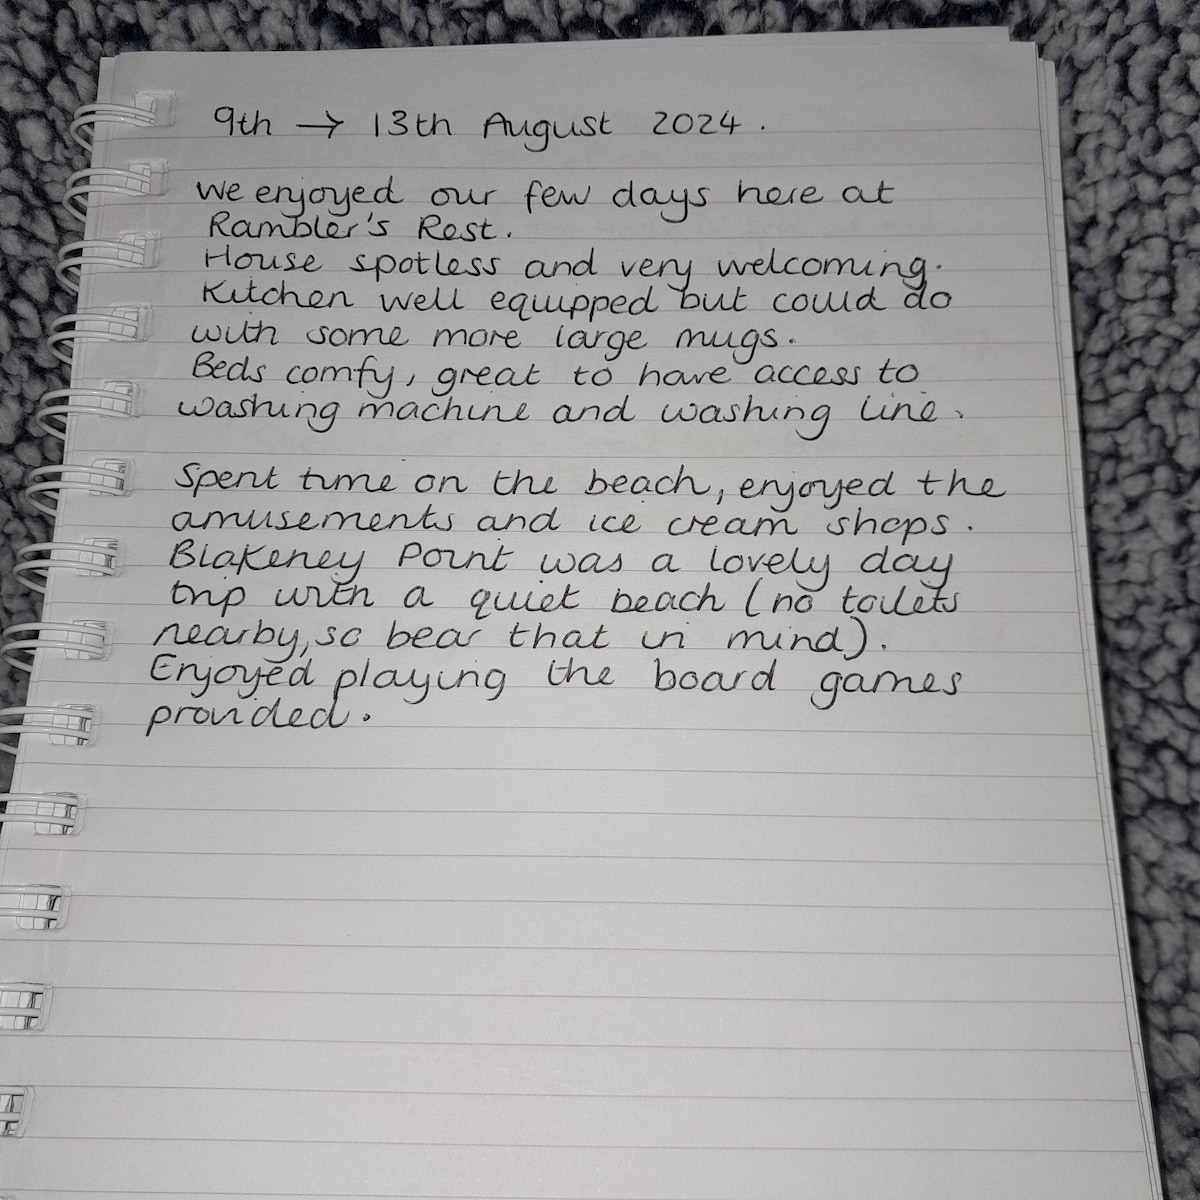 9th → 13th August 2024.
We enjoyed our few days here at
Rambler's Rest.
House spotless and very welcoming.
Kitchen well equipped but could do
with some more large mugs.
Beds comfy, great to have access to
washing machine and washing line.
Spent time on the beach, enjoyed the
amusements and ice cream shops.
Blakeney Point was a lovely day
trip with a quiet beach (no toilets
nearby, so bear that in mind).
Enjoyed playing the board games
provided.